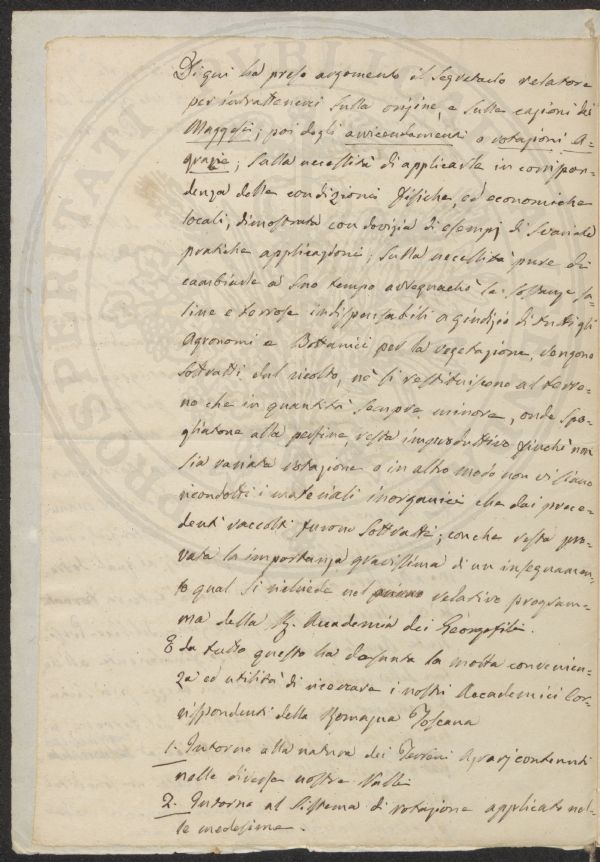 Di qui ha preso argomento il Segretario relatore
per intrattenervi sulla origine, e sulle cagioni dei
Maggesi; poi degli avvicendamenti o rotazioni A-
grarie; sulla necessità di applicarle in corrispon-
denza delle condizioni fisiche, ed economiche
locali, dimostrata con dovizia di esempj di svariate
pratiche applicazioni; sulla necessità pure di
cambiarle a suo tempo avvegnachè le sostanze sa-
line e terrose indispensabili a giudizio di tutti gli
Agronomi e Bottanici per la vegetazione, vengono
sottratti dal ricolto, nè si restituiscono al terre-
no che in quantità sempre minore, onde spo-
gliatone alla perfine, resta improduttivo finchè non
sia variata rotazione o in altro modo non vi siano
ricondotti i materiali inorganici che dai prece-
denti raccolti furono sottratti; conchè resta pro-
vata la importanza gravissima di un insegnamen-
to qual si richiede nel relativo program-
ma della R. Accademia dei Georgofili.
E da tutto questo ha desunta la molta convenien-
za ed utilità di ricercare i nostri Accademici Cor-
rispondenti della Romagna Toscana
1. Intorno alla natura dei Terreni Agrarj contenuti
nelle diverse nostre Valli
2. Intorno al sistema di rotazione applicato nel-
le medesime.
PROSPERITATI PUBLICAE